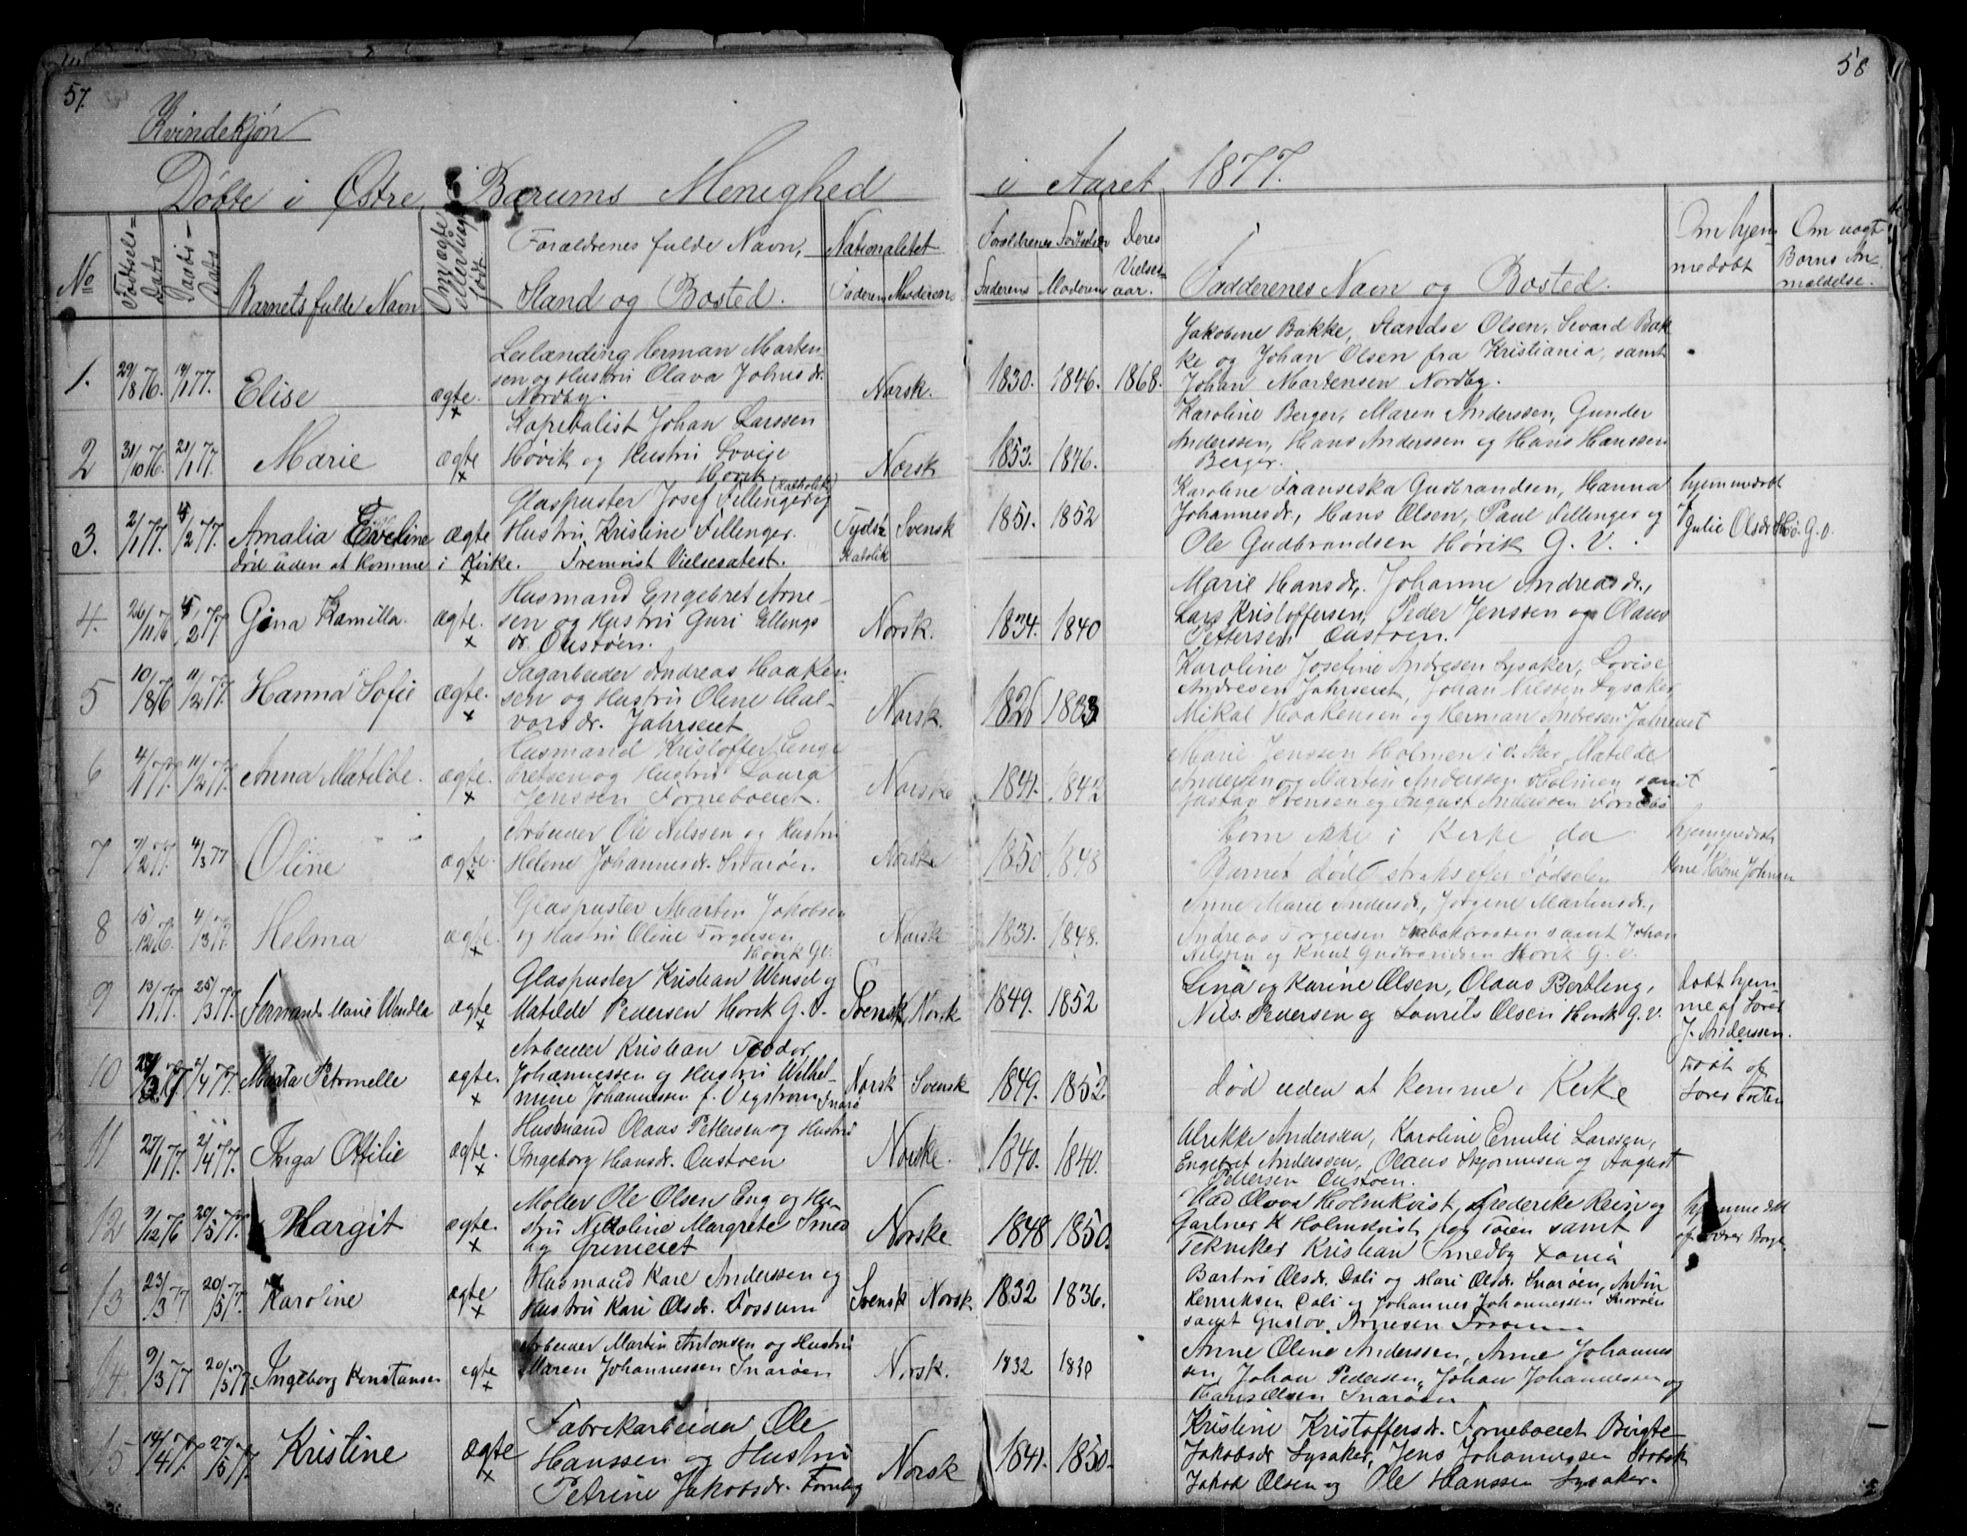 57.
58
Kvindekjön
Döbte i Østre Bærums Menighed i Aaret 1877.
No
Födsels-Dato
Daabs-Dato
Barnets fulde Navn
Om ægte eller uægte födt
Forældrenes fulde Navn,
Stand og Bosted.
Nationalitet
Faderens Moderens
Forældrenes Födselsaar
Faderens Moderens
Deres Vielsesaar.
Faddernes Navn og Bosted.
Om hjemmedöbt
Om uægte Borns Anmeldelse.
1. 29/8 76. 14/1 77. Elise ægte.
Leilænding Herman Marten-
sen og Hustru Olava Johnsdr.
Nordby.
Norsk. 1830. 1846. 1868.
Jakobine Bakke, Olsen, Sivard Bak
ke og Johan Olsen fra Kristiania, samt
Johan Martensen Nordby.
2 31/10 76. 21/1 77. Marie ægte
Johan Larssen
Høvik og Hustru Lovise
Høvik
Norsk 1853. 1846.
Karoline Berger, Maren Anderssen, Gunder
Anderssen, Hans Anderssen og Hans Hanssen
Berger.
3. 2/1 77. /2 77. Amalia Eveline ægte
Glaspuster Josef Fillinger og (Katholik)
Hustru Kristine Fillinger.
död uden at komme i Kirke. Fremvist Vielsesatest.
Tydsk Katolik Svensk 1851. 1852
Karoline Franseska Gudbrandsen, Hanna
Johannesdr, Hans Olsen, Paul Fillinger og
Ole Gudbrandsen Hövik G. V.
hjemmedöbt
Julie Olsdr G.V.
4. 26/11 76 /2 77 Gina Kamilla. ægte.
Husmand Engebret Arne-
sen og Hustru Guri Ellings
dr. Oustöen.
Norsk. 1834. 1840
Marie Hansdr. Johanne Andreasdr.,
Lars Kristoffersen, Peder Jenssen og Olaus
Pettersen Oustöen.
5 10/8 76 11/2 77. Hanna Sofie ægte.
Sagarbeider Andreas Haaken-
sen og Hustru Olene Hal-
vorsdr. Jahreiet
Norsk. 1826 1833
Karoline Josefine Andresen Lysaker, Lovise
Andresen, Johan Nilssen Lysaker
Mikal Haakensen og Herman Andresen
6 4/1 77. 11/2 77. Anna Matilde. ægte.
Husmand Kristoffer Enge-
bretsen og Hustru Laura
Jenssen Forneboeiet.
Norske 1841. 1842
Marie Jenssen Holmen Matilde
Andersen og Martin Anderssen Holmen samt
Gustav Svensen og August Anderssen Fornebo
7 /2 77. 4/3 77 Oline ægte.
Arbeider Ole Nilssen og Hustru
Helene Johannesdr. Snaröen.
Norske 1850 1848
Kom ikke i Kirke da
Barnet döde straks efter Födselen
hjemmedöbt
8 15/12 76. 4/3 77. Helma ægte.
Glaspuster Martin Jakobsen
og Hustru Oline Torgersen
Hövik G.V.
Norske 1831. 1848.
Anne Marie Andersdr, Jorgine Martinsdr.,
Andreas Torgersen samt Johan
Nilssen og Knut Gudbrandsen Hövik G. V.
9 13/1 77. 25/3 77. Marie Wendla ægte
Glaspuster Kristian Wensel og
Matilde Pedersen Hövik G. V.
Svensk Norsk 1849. 1852
Lina og Karine Olsen, Olaus Bertling,
Nils Pedersen og Laurits Olsen Hövik G. V.
Döbt hjem
me af Lærer
J. Anderssen.
10 /3 77 2/4 77. Marta Petronelle ægte.
Arbeider Kristian Teodor
Johannessen og Hustru Wilhel-
mine Johannessen f. Vigström Snarö
Norsk Svensk 1849. 1852
död uden at komme i Kirke
Döbt af
Lærer
11 27/1 77. 2/4 77. Inga Otilie ægte.
Husmand Olaus Pettersen og Hustru
Ingeborg Hansdr. Oustöen
Norske. 1840. 1840.
Ulrikke Anderssen, Karoline Emilie Larssen,
Engebret Anderssen, Olaus og August
Pettersen Oustöen.
12 9/12 76 20/5 77. Margit ægte.
Möller Ole Olsen Eng og Hu-
stru Nikoline Margrete Smed
Norske 1848 1850.
Mad. Olava Holmkvist, Frederike Rein og
Gartner K Holmkvist samt
Tekniker Kristian Smedby
hjemmedöbt
af Lærer
13 23/3 77 20/5 77. Karoline ægte
Husmand Karl Anderssen og
Hustru Kari Olsdr. Fossum
Svensk Norsk 1832 1836.
Olsdr. Dali og Mari Olsdr. Snaröen, Anton
Henriksen Dali og Johannes Johannessen Snaröen
samt Gustav Arnesen
14. 9/3 77 20/5 77. Ingeborg Konstanse ægte
Arbeider Martin Antonsen og Hustru
Maren Johannessen Snaröen
Norsk. 1832 1839
Anne Oline Anderssen, Anne Johannes
sen, Johan Pedersen, Johan Johannessen og
Hans Olsen Snaröen
15 14/4 77. 27/5 77. Kristine ægte
Fabrikarbeider Ole
Hanssen og Hustru
Petrine Jakobsdr. Forneby
Norsk 1841. 1850.
Kristine Kristoffersdr. Forneboeiet Birgte
Jakobsdr Lysaker, Jens Johannessen
Jakob Olsen og Ole Hanssen Lysaker.